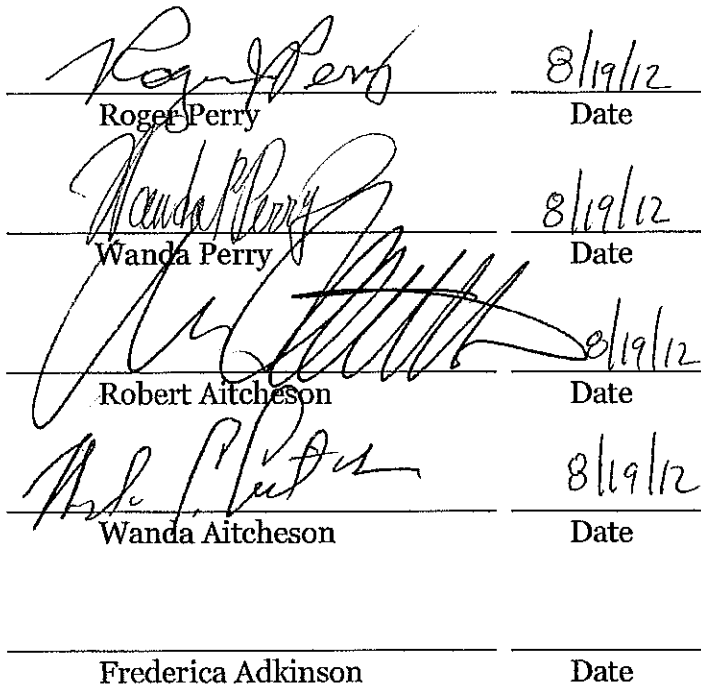 Roger Perry 8/19/12
Roger Perry Date
Wanda P Perry 8/19/12
Wanda Perry Date
8/19/12
Robert Aitcheson Date
8/19/12
Wanda Aitcheson Date
Frederica Adkinson Date